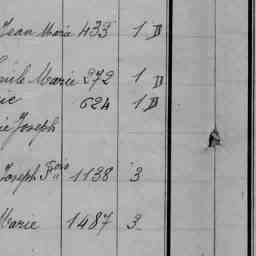 Jean Marie 433 1 D
Marie 272 1 D
624 1 D
Joseph
Joseph Fois 1138 3
Marie 1487 3